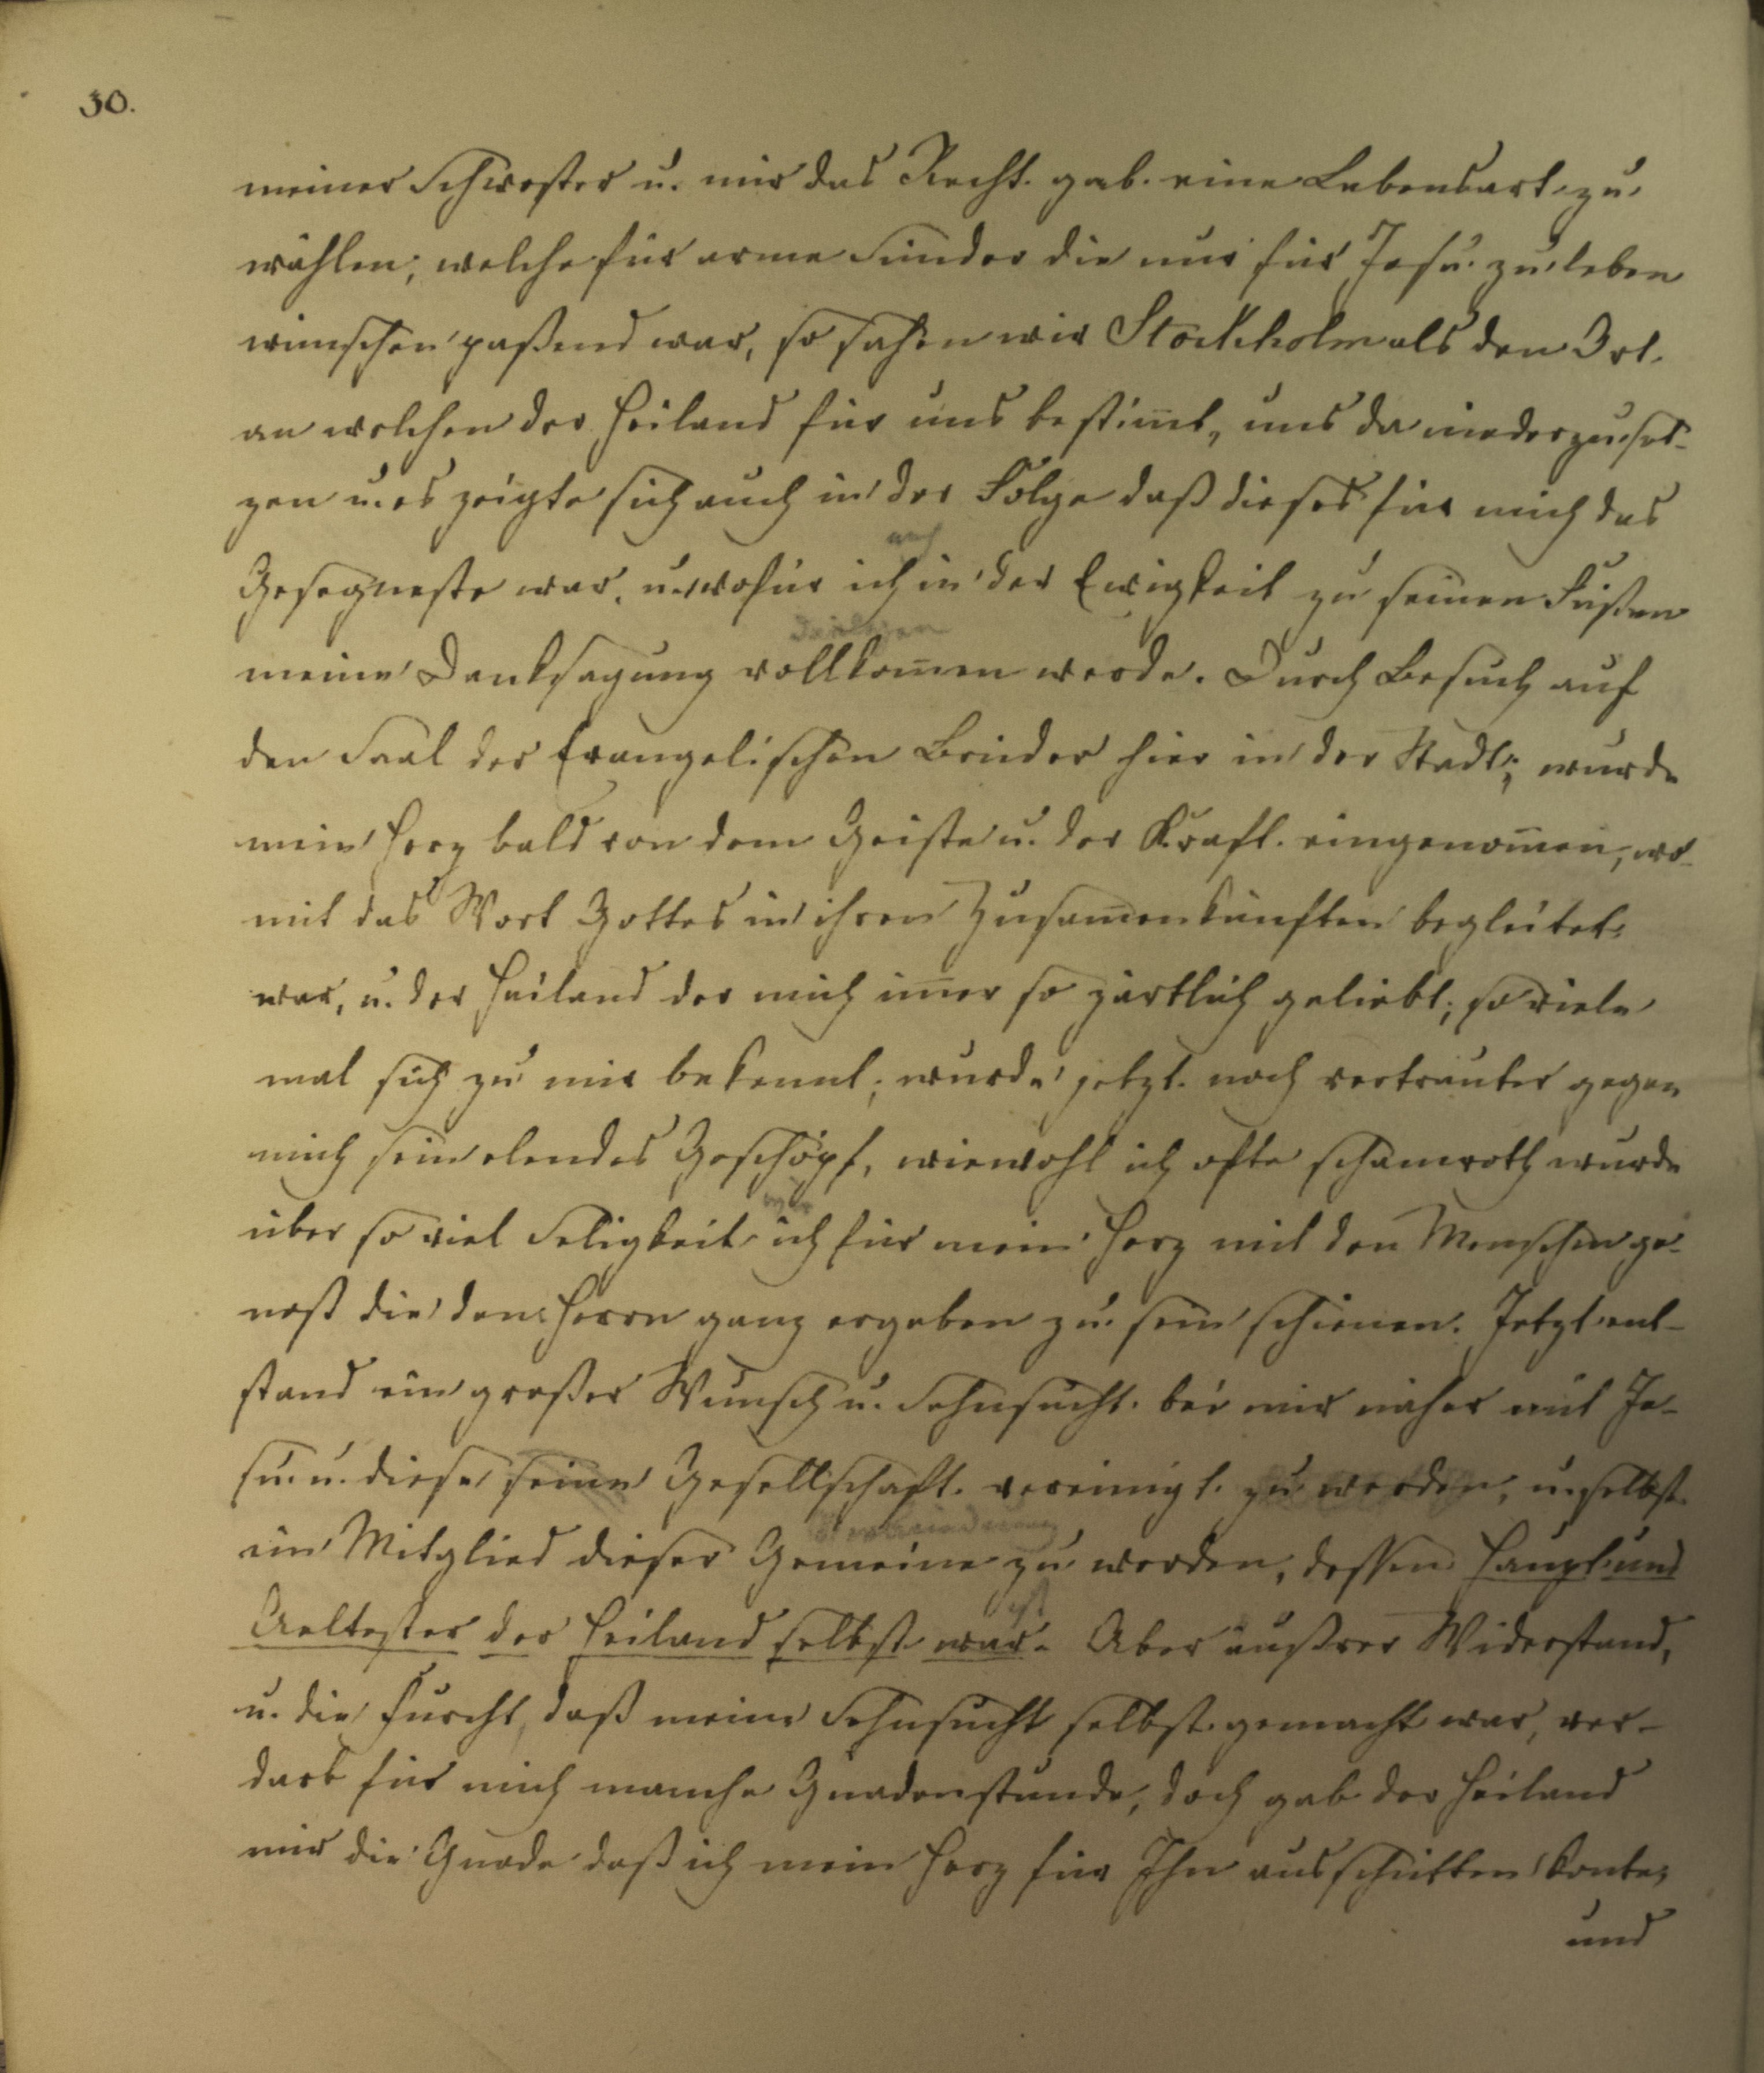 30.
meiner Schwester u. mir das Recht gab eine Lebensart zu
wählen, welche für arme Sünder die nur für Jesu zu leben
wünschen paßend war, so sahen wir Stockholm als den Ort
an welchen der Heiland für uns bestim̅t, uns da niederzuset-
zen u. es zeigte sich auch in der Folge daß dieses für mich das
auch
Gesegneste war, u. wofür ich in der Ewigkeit zu seinen Füßen
meine Danksagung vollkom̅en werde. Durch Besuch auf
den Saal der Evangelischen Brüder hier in der Stadt, wurde
mein Herz bald von dem Geiste u. der Kraft eingenom̅en, wo-
mit das Wort Gottes in ihren Zusam̅enkünften begleitet
war, u. der Heiland der mich im̅er so zärtlich geliebt, so viele
mal sich zu mir bekennt, wurde jetzt noch vertrauter gegen
mich sein elendes Geschöpf, wiewohl ich ofte schamroth wurde
über so viel Seligkeit ich für mein Herz mit den Menschen ge-
noß die dem Herrn ganz ergeben zu sein schienen. Jetzt ent-
stand ein großer Wunsch u. Sehnsucht bei mir näher mit Je-
su u. diese seine Gesellschaft vereinigt zu werden, u. selbst
ein Mitglied dieser Gemeine zu werden, dessen Haupt und
ist
Aeltester der Heiland selbst war. Aber äußrer Widerstand,
u. die Furcht, daß meine Sehnsucht selbst gemacht war, ver-
darb für mich manche Gnadenstunde, doch gab der Heiland
mir die Gnade daß ich mein Herz für Ihn ausschütten konte,
und